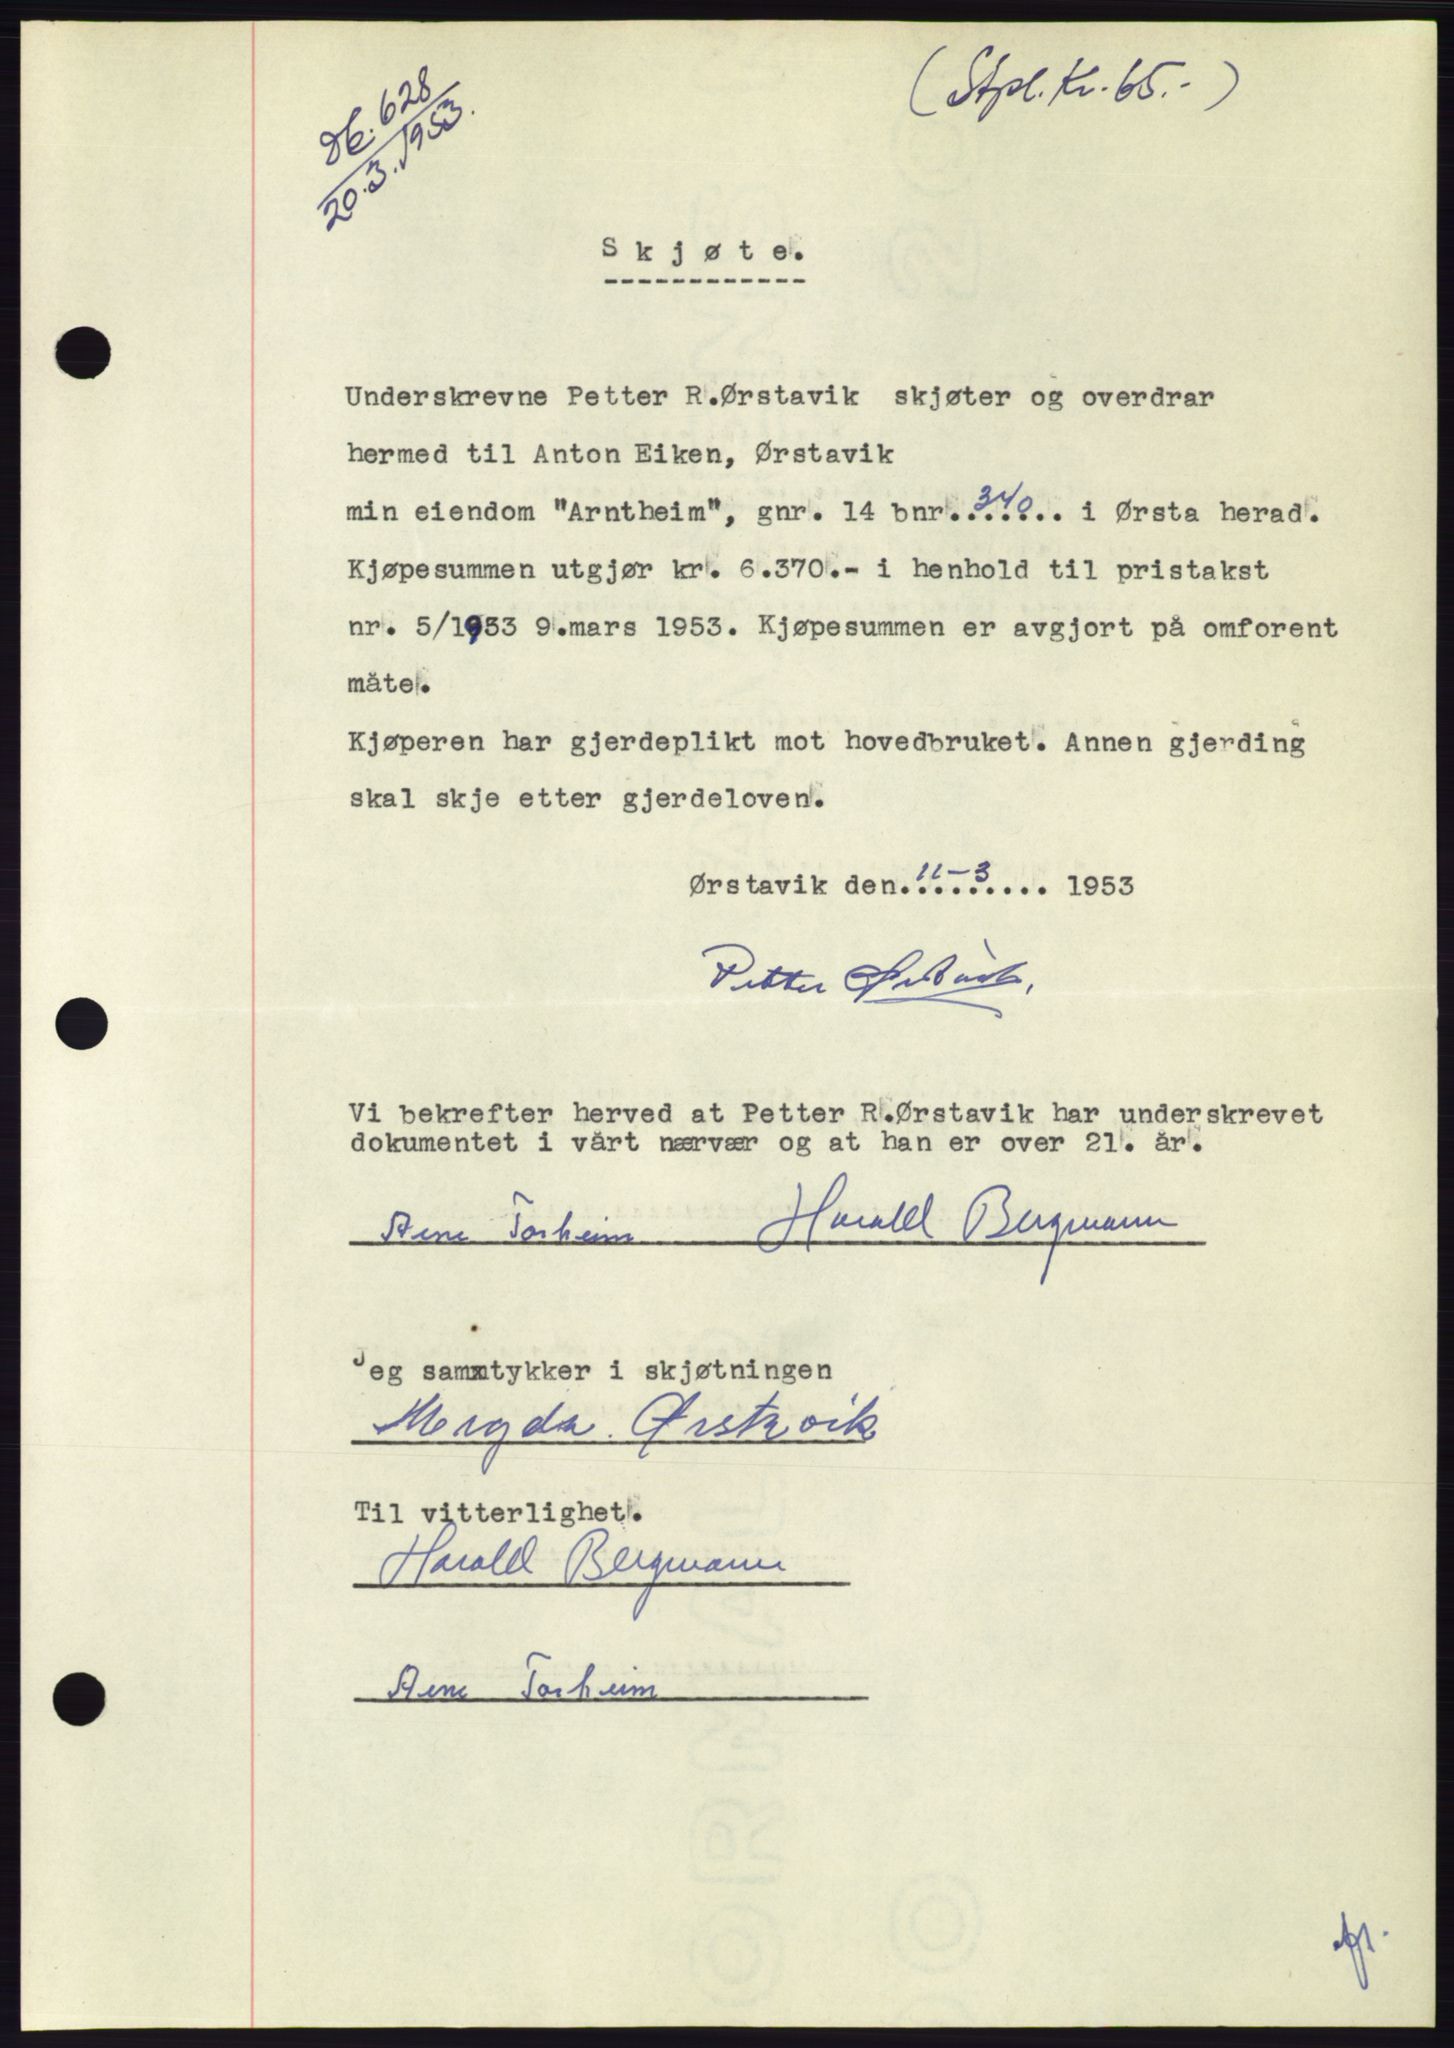 (Stpl. Kr. 65.-)
Db. 628
20.3.1953.
Skjøte.
Underskrevne Petter R.Ørstavik skjøter og overdrar
hermed til Anton Eiken, Ørstavik
min eiendom "Arntheim", gnr. 14 bnr. 340 i Ørsta herad.
Kjøpesummen utgjør kr. 6.370.- i henhold til pristakst
nr. 5/1953 9.mars 1953. Kjøpesummen er avgjort på omforent
måte.
Kjøperen har gjerdeplikt mot hovedbruket. Annen gjerding
skal skje etter gjerdeloven.
Ørstavik den 11-3 1953
Petter Ørstavik.
Vi bekrefter herved at Petter R.Ørstavik har underskrevet
dokumentet i vårt nærvær og at han er over 21. år.
Arne Torheim Harald Bergmann
Jeg samxtykker i skjøtningen
Magda Ørstavik
Til vitterlighet.
Harald Bergmann
Arne Torheim